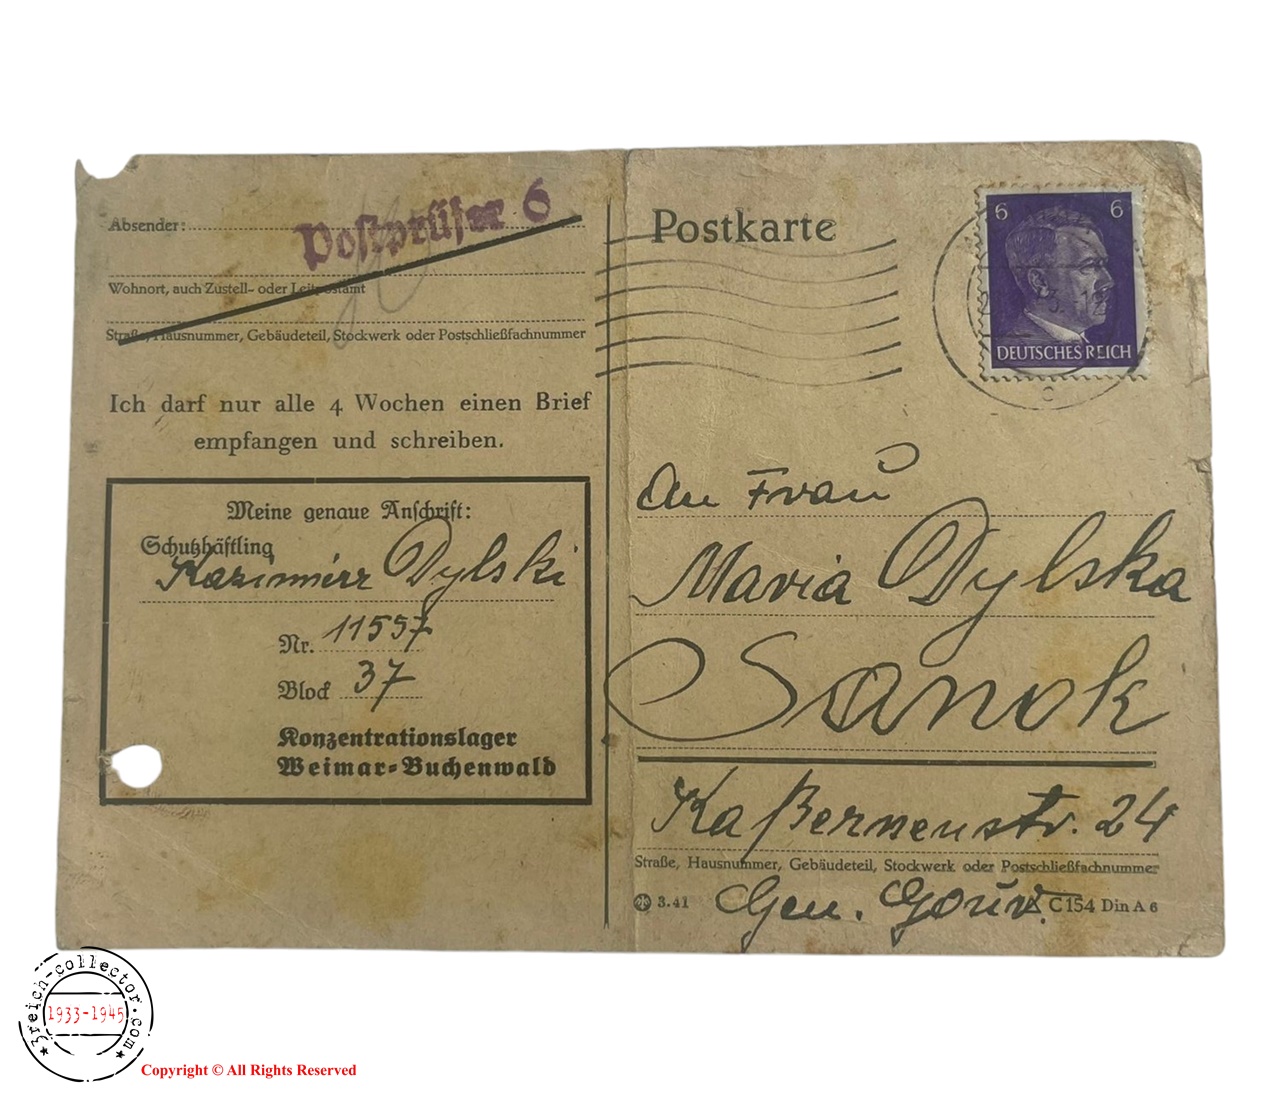 Absender:
Postprüfer 6
Wohnort, auch Zustell- oder Leitpostamt
Straße, Hausnummer, Gebäudeteil, Stockwerk oder Postschließfachnummer
Ich darf nur alle 4 Wochen einen Brief
empfangen und schreiben.
Meine genaue Anschrift:
Schutzhäftling
Kazimierz Dylski
Nr. 11557
Block 37
Konzentrationslager
Weimar-Buchenwald
Postkarte
6 6
DEUTSCHES REICH
c
An Frau
Maria Dylska
Sanok
Kaßernenstr. 24
Straße, Hausnummer, Gebäudeteil, Stockwerk oder Postschließfachnummer
3.41
Gen. Gouv.
C 154 Din A 6
3reich-collector.com
1933-1945
Copyright © All Rights Reserved